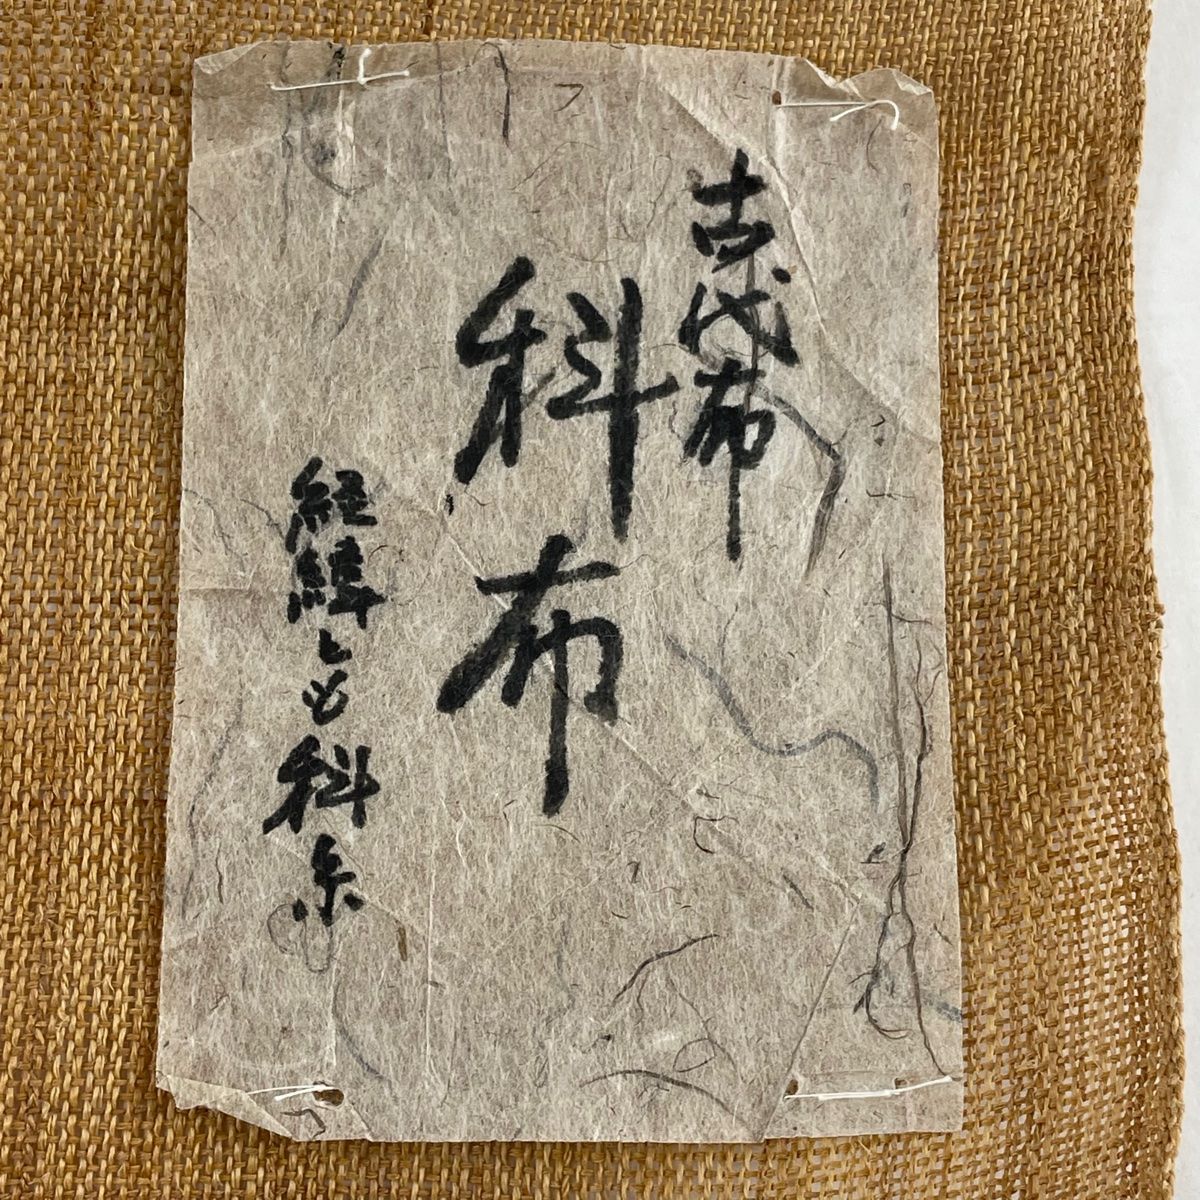 古代布
科布
経緯とも科糸